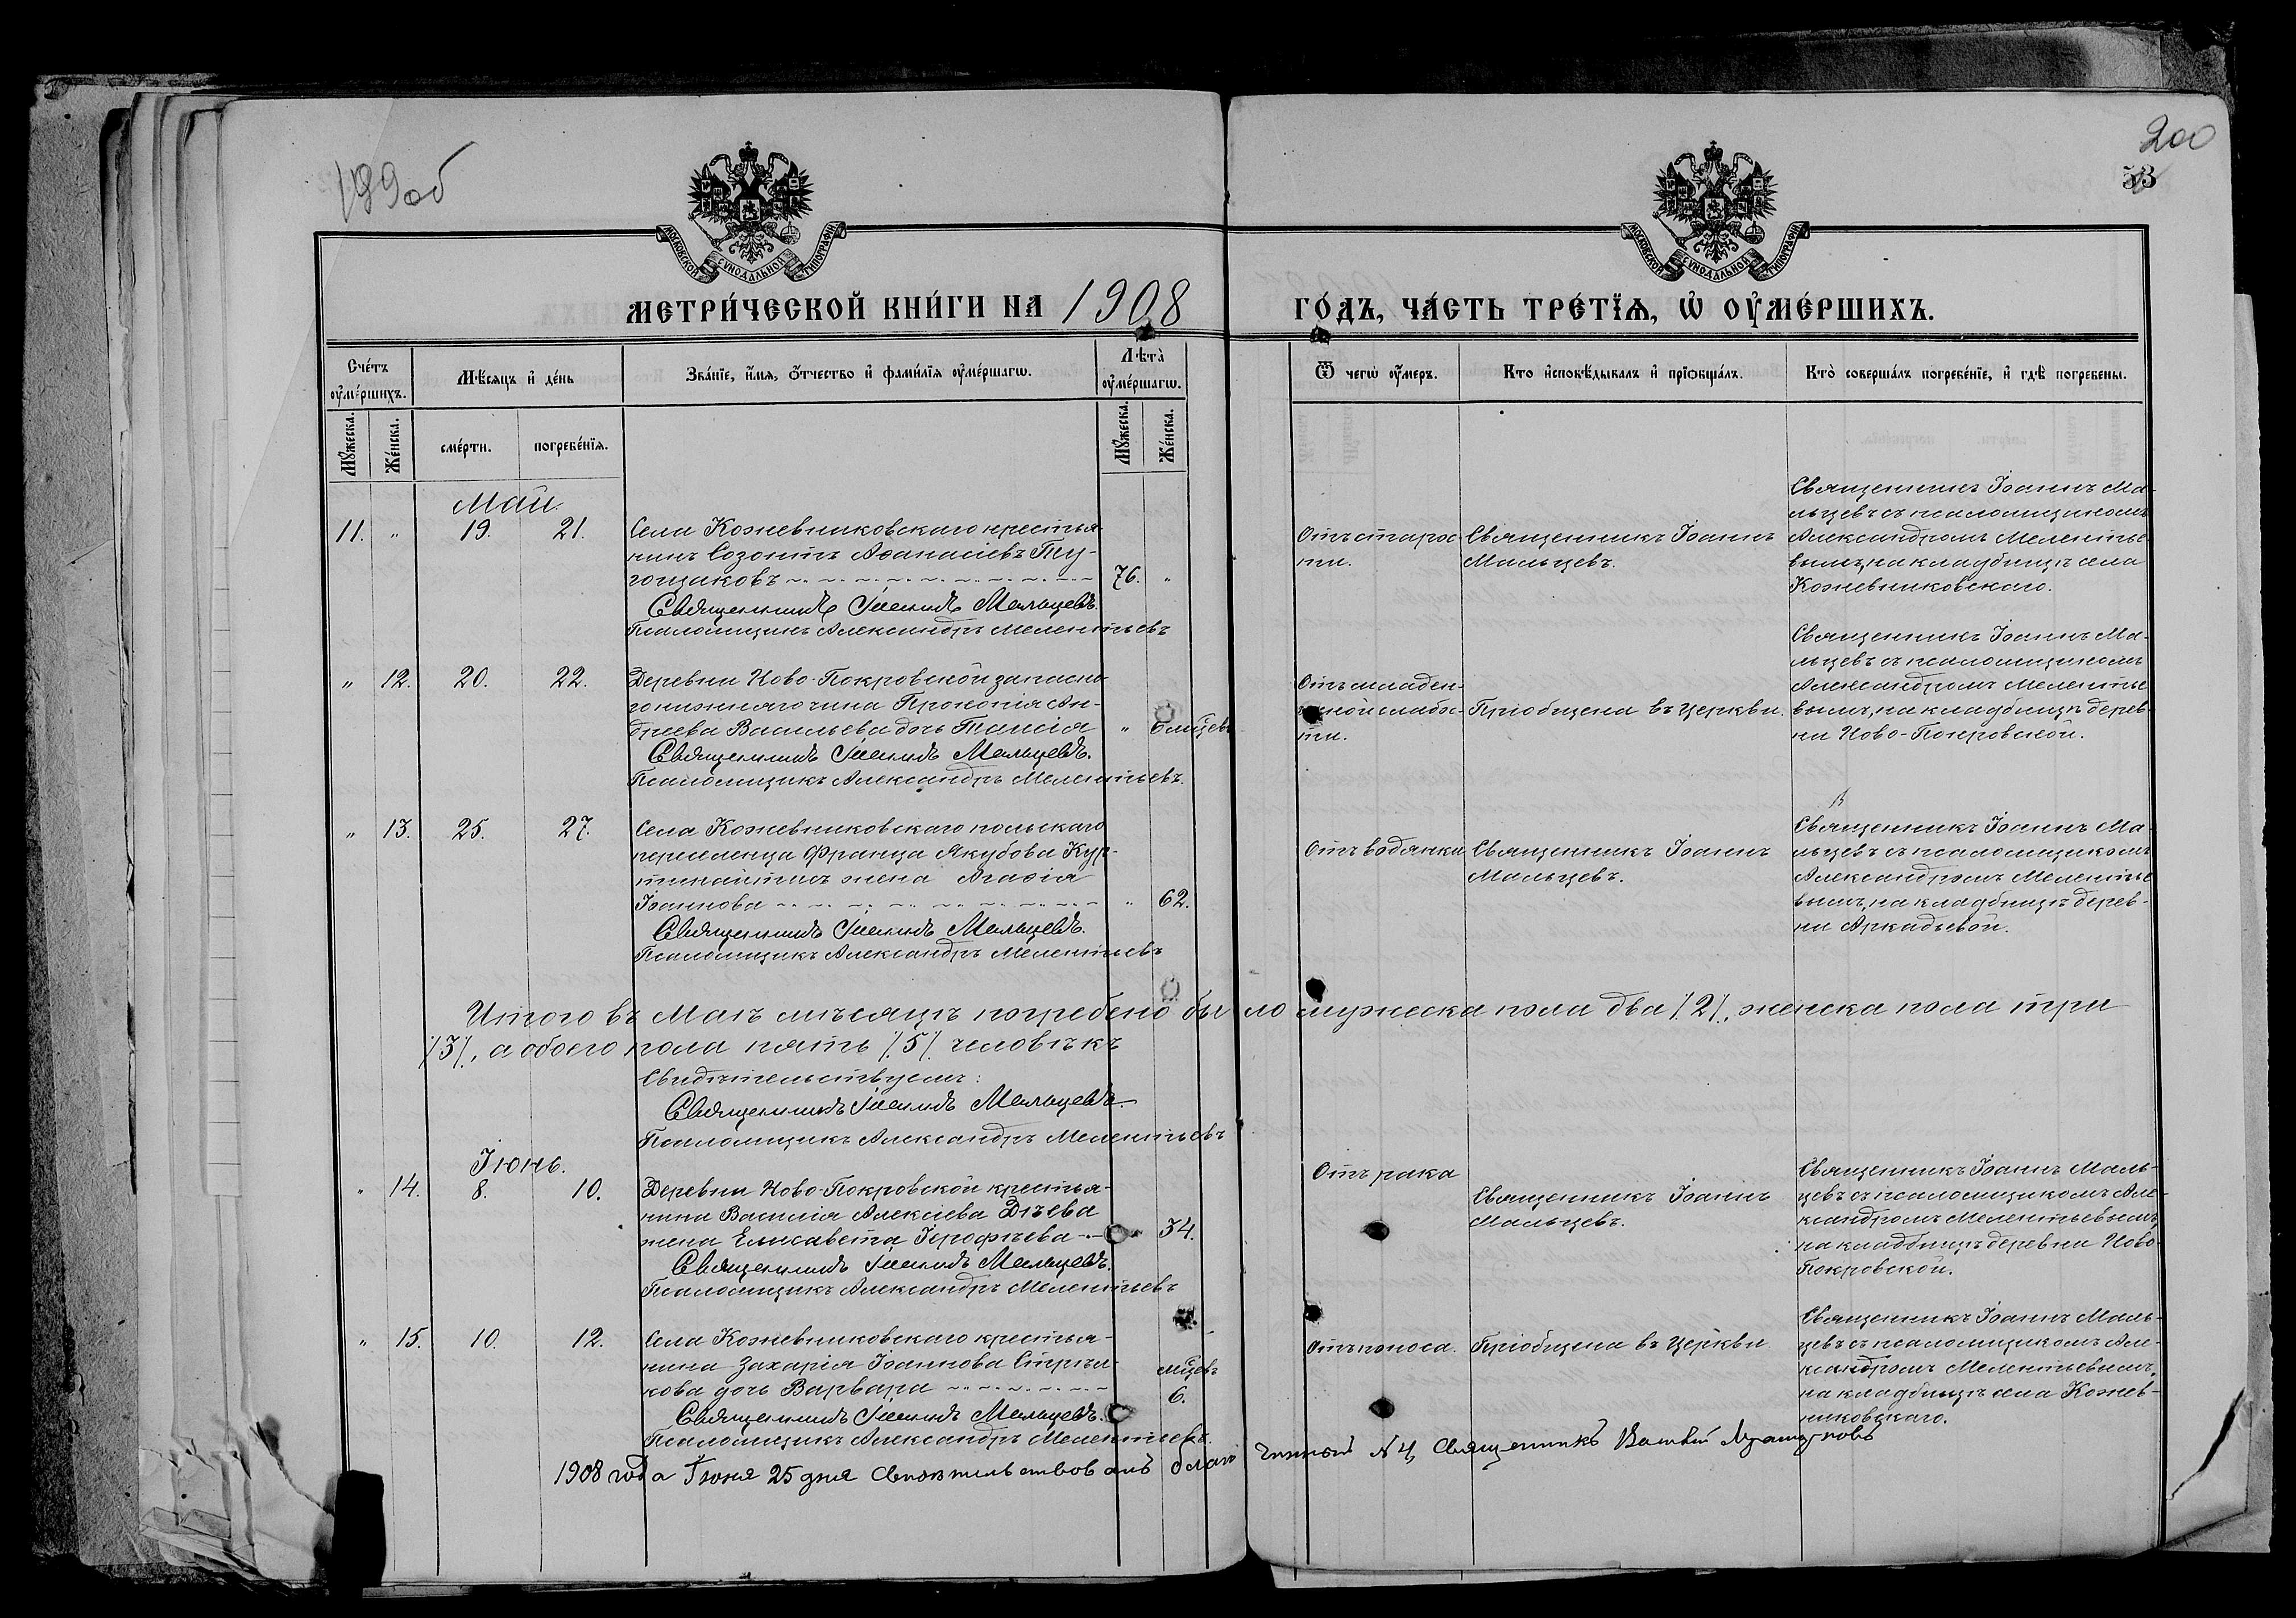 199об
200
53
МОСКОВСКОЙ СѴНОДАЛЬНОЙ ТИПОГРАФІИ
МОСКОВСКОЙ СѴНОДАЛЬНОЙ ТИПОГРАФІИ
МЕТРИ́ЧЕСКОЙ КНИ́ГИ НА 1908 ГО́ДЪ, ЧА́СТЬ ТРЕ́ТЇѦ, Ѡ҆ ОУ҆МЕ́РШИХЪ.
Сче́тъ оу҆ме́ршихъ.
Мѣ́сяцъ и҆ де́нь
Зва́нїе, и҆́мя, ѻ҆́тчество и҆ фами́лїя оу҆ме́ршагѡ.
Лѣ́та оу҆ме́ршагѡ.
Ѿ чегѡ̀ оу҆́меръ.
Кто̀ и҆сповѣ́дывалъ и҆ прїѡбща́лъ.
Кто̀ соверша́лъ погребе́нїе, и҆ гдѣ̀ погребены.
Мꙋ́жеска.
Же́нска.
сме́рти.
погребе́нїя.
Мꙋ́жеска.
Же́нска.
Май.
11. " 19. 21.
Села Кожевниковскаго крестья-
нинъ Созонтъ Аѳанасіевъ
76. "
Священникъ Іоаннъ Мальцевъ.
Псаломщикъ Александръ Мелентьевъ
Отъ старос-
ти.
Священникъ Іоаннъ
Мальцевъ.
Священникъ Іоаннъ Ма-
льцевъ съ псаломщикомъ
Александромъ Мелентье-
вымъ, на кладбищѣ села
Кожевниковскаго.
" 12. 20. 22.
Деревни Ново-Покровской запасна-
го нижняго чина Прокопія Ан-
дреева Васильева дочь Таисія
" 6 мцевъ
Священникъ Іоаннъ Мальцевъ.
Псаломщикъ Александръ Мелентьевъ.
Отъ младен-
ческой слабос-
ти.
Пріобщена въ Церкви.
Священникъ Іоаннъ Ма-
льцевъ съ псаломщикомъ
Александромъ Мелентье-
вымъ, на кладбищѣ дерев-
ни Ново-Покровской.
" 13. 25. 27.
Села Кожевниковскаго польскаго
переселенца Франца Якубова
жена Агаѳія
Іоаннова
" 62.
Священникъ Іоаннъ Мальцевъ.
Псаломщикъ Александръ Мелентьевъ
Отъ водянки
Священникъ Іоаннъ
Мальцевъ.
Священникъ Іоаннъ Ма-
льцевъ съ псаломщикомъ
Александромъ Мелентье-
вымъ, на кладбищѣ дерев-
ни Аркадьевой.
Итого въ Маѣ мѣсяцѣ погребено было мужеска пола два /2/, женска пола три
/3/, а обоего пола пять /5/ человѣкъ
Свидѣтельствуемъ:
Священникъ Іоаннъ Мальцевъ.
Псаломщикъ Александръ Мелентьевъ
Іюнь.
" 14. 8. 10.
Деревни Ново-Покровской крестья-
нина Василія Алексіева Дѣева
жена Елисавета Іерофѣева
" 34.
Священникъ Іоаннъ Мальцевъ.
Псаломщикъ Александръ Мелентьевъ
Отъ рака
Священникъ Іоаннъ
Мальцевъ.
Священникъ Іоаннъ Маль-
цевъ съ псаломщикомъ Але-
ксандромъ Мелентьевымъ,
на кладбищѣ деревни Ново-
Покровской.
" 15. 10. 12.
Села Кожевниковскаго крестья-
нина Захарія Іоаннова Стрѣль-
кова дочь Варвара
мцевъ
6.
Священникъ Іоаннъ Мальцевъ.
Псаломщикъ Александръ Мелентьевъ.
Отъ поноса.
Пріобщена въ Церкви
Священникъ Іоаннъ Маль-
цевъ съ псаломщикомъ Але-
ксандромъ Мелентьевымъ,
на кладбищѣ села Кожев-
никовскаго.
1908 года Іюня 25 дня Свидѣтельствовалъ благочинный № 4, Священникъ